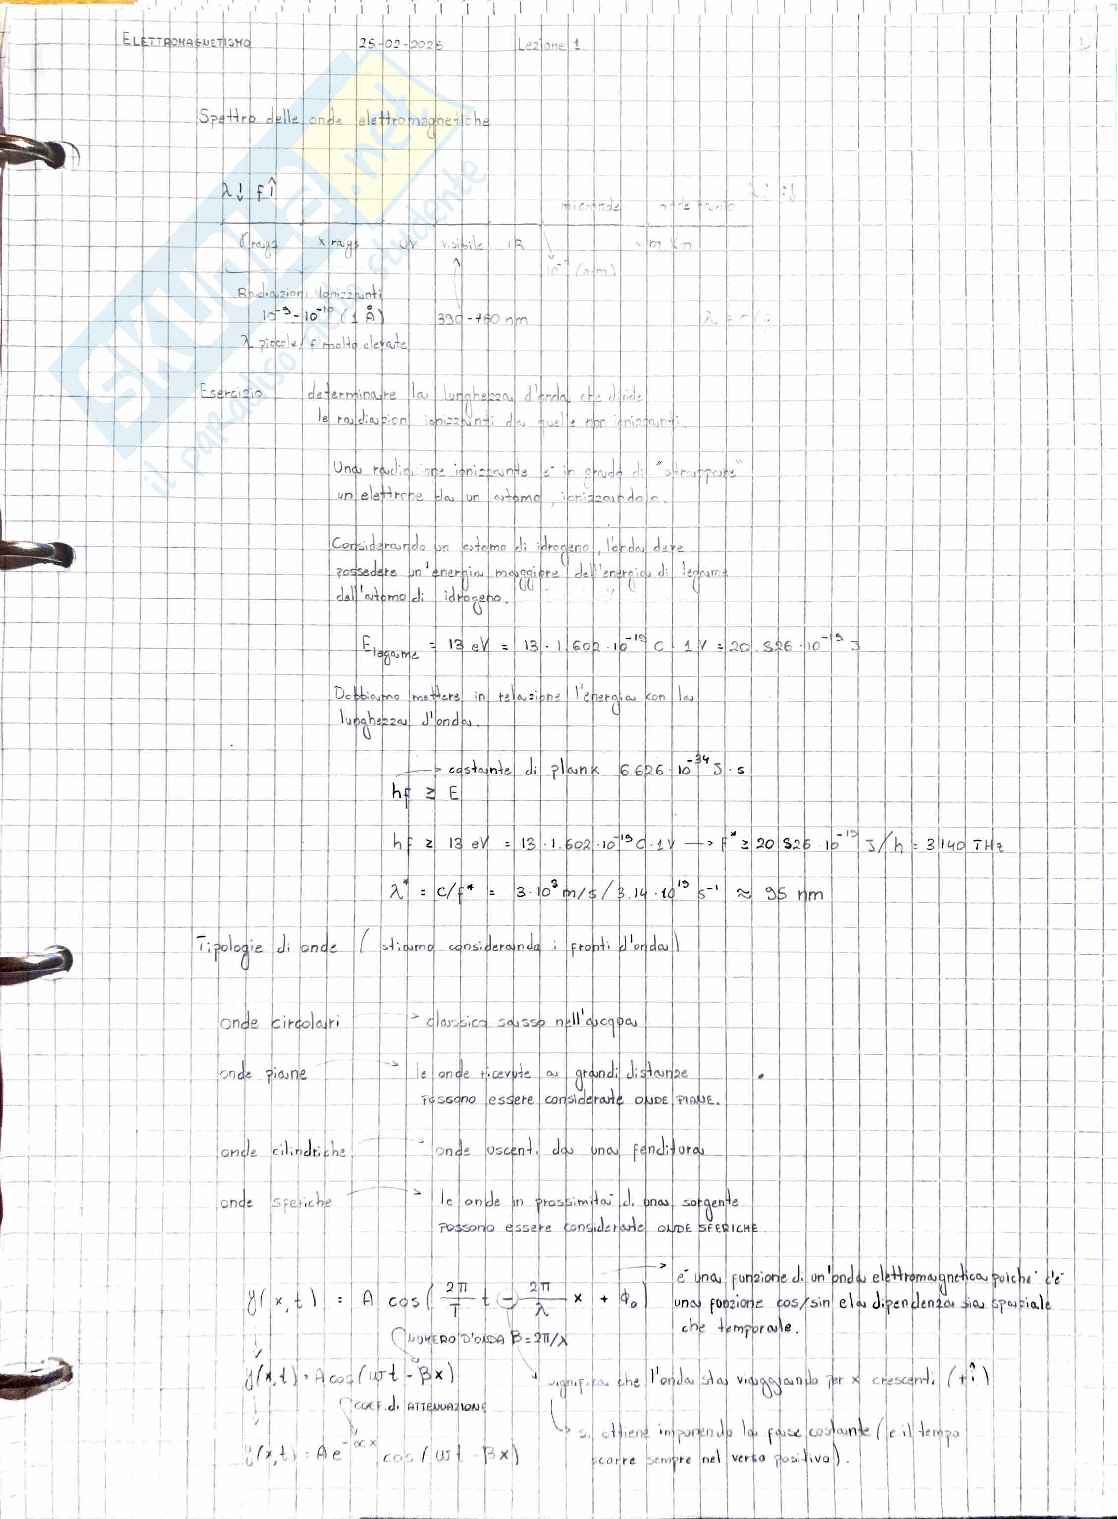 ELETTROMAGNETISMO 25-02-2025 Lezione 1
Spettro delle onde elettromagnetiche
λ↓ f↑
γ rays x rays UV visibile IR
Radiazioni Ionizzanti
10⁻⁹-10⁻¹⁰ (1 Å) 390-760 nm
λ piccole/f molto elevate
Esercizio determinare la lunghezza d'onda che divide
le radiazioni ionizzanti da quelle non ionizzanti.
Una radiazione ionizzante è in grado di "strappare"
un elettrone da un atomo, ionizzandolo.
Considerando un atomo di idrogeno, l'onda deve
possedere un'energia maggiore dell'energia di legame
dell'atomo di idrogeno.
E legame = 13 eV = 13·1.602·10⁻¹⁹ C 1V = 20.826·10⁻¹⁹ J
Dobbiamo mettere in relazione l'energia con la
lunghezza d'onda.
→ costante di plank 6.626·10⁻³⁴ J·s
hf ≥ E
hf ≥ 13 eV = 13·1.602·10⁻¹⁹ C·1V → f* ≥ 20.826·10⁻¹⁹ J/h = 3140 THz
λ* = c/f* = 3·10⁸ m/s / 3.14·10¹⁵ s⁻¹ ≈ 95 nm
Tipologie di onde (stiamo considerando i fronti d'onda)
onde circolari → classico sasso nell'acqua
onde piane → le onde ricevute a grandi distanze
possono essere considerate ONDE PIANE.
onde cilindriche → onde uscenti da una fenditura
onde sferiche → le onde in prossimità di una sorgente
possono essere considerate ONDE SFERICHE.
y(x,t) = A cos(2π/T t - 2π/λ x + ϕ₀) → è una funzione di un'onda elettromagnetica poiché c'è
una funzione cos/sin e la dipendenza sia spaziale
che temporale.
NUMERO D'ONDA β = 2π/λ
y(x,t) = A cos(ωt - βx)
significa che l'onda sta viaggiando per x crescenti (+î)
COEF. di ATTENUAZIONE
si ottiene imponendo la fase costante (e il tempo
y(x,t) = A e^-αx cos(ωt - βx)
scorre sempre nel verso positivo).
SKUOLA.net
il paradiso dello studente